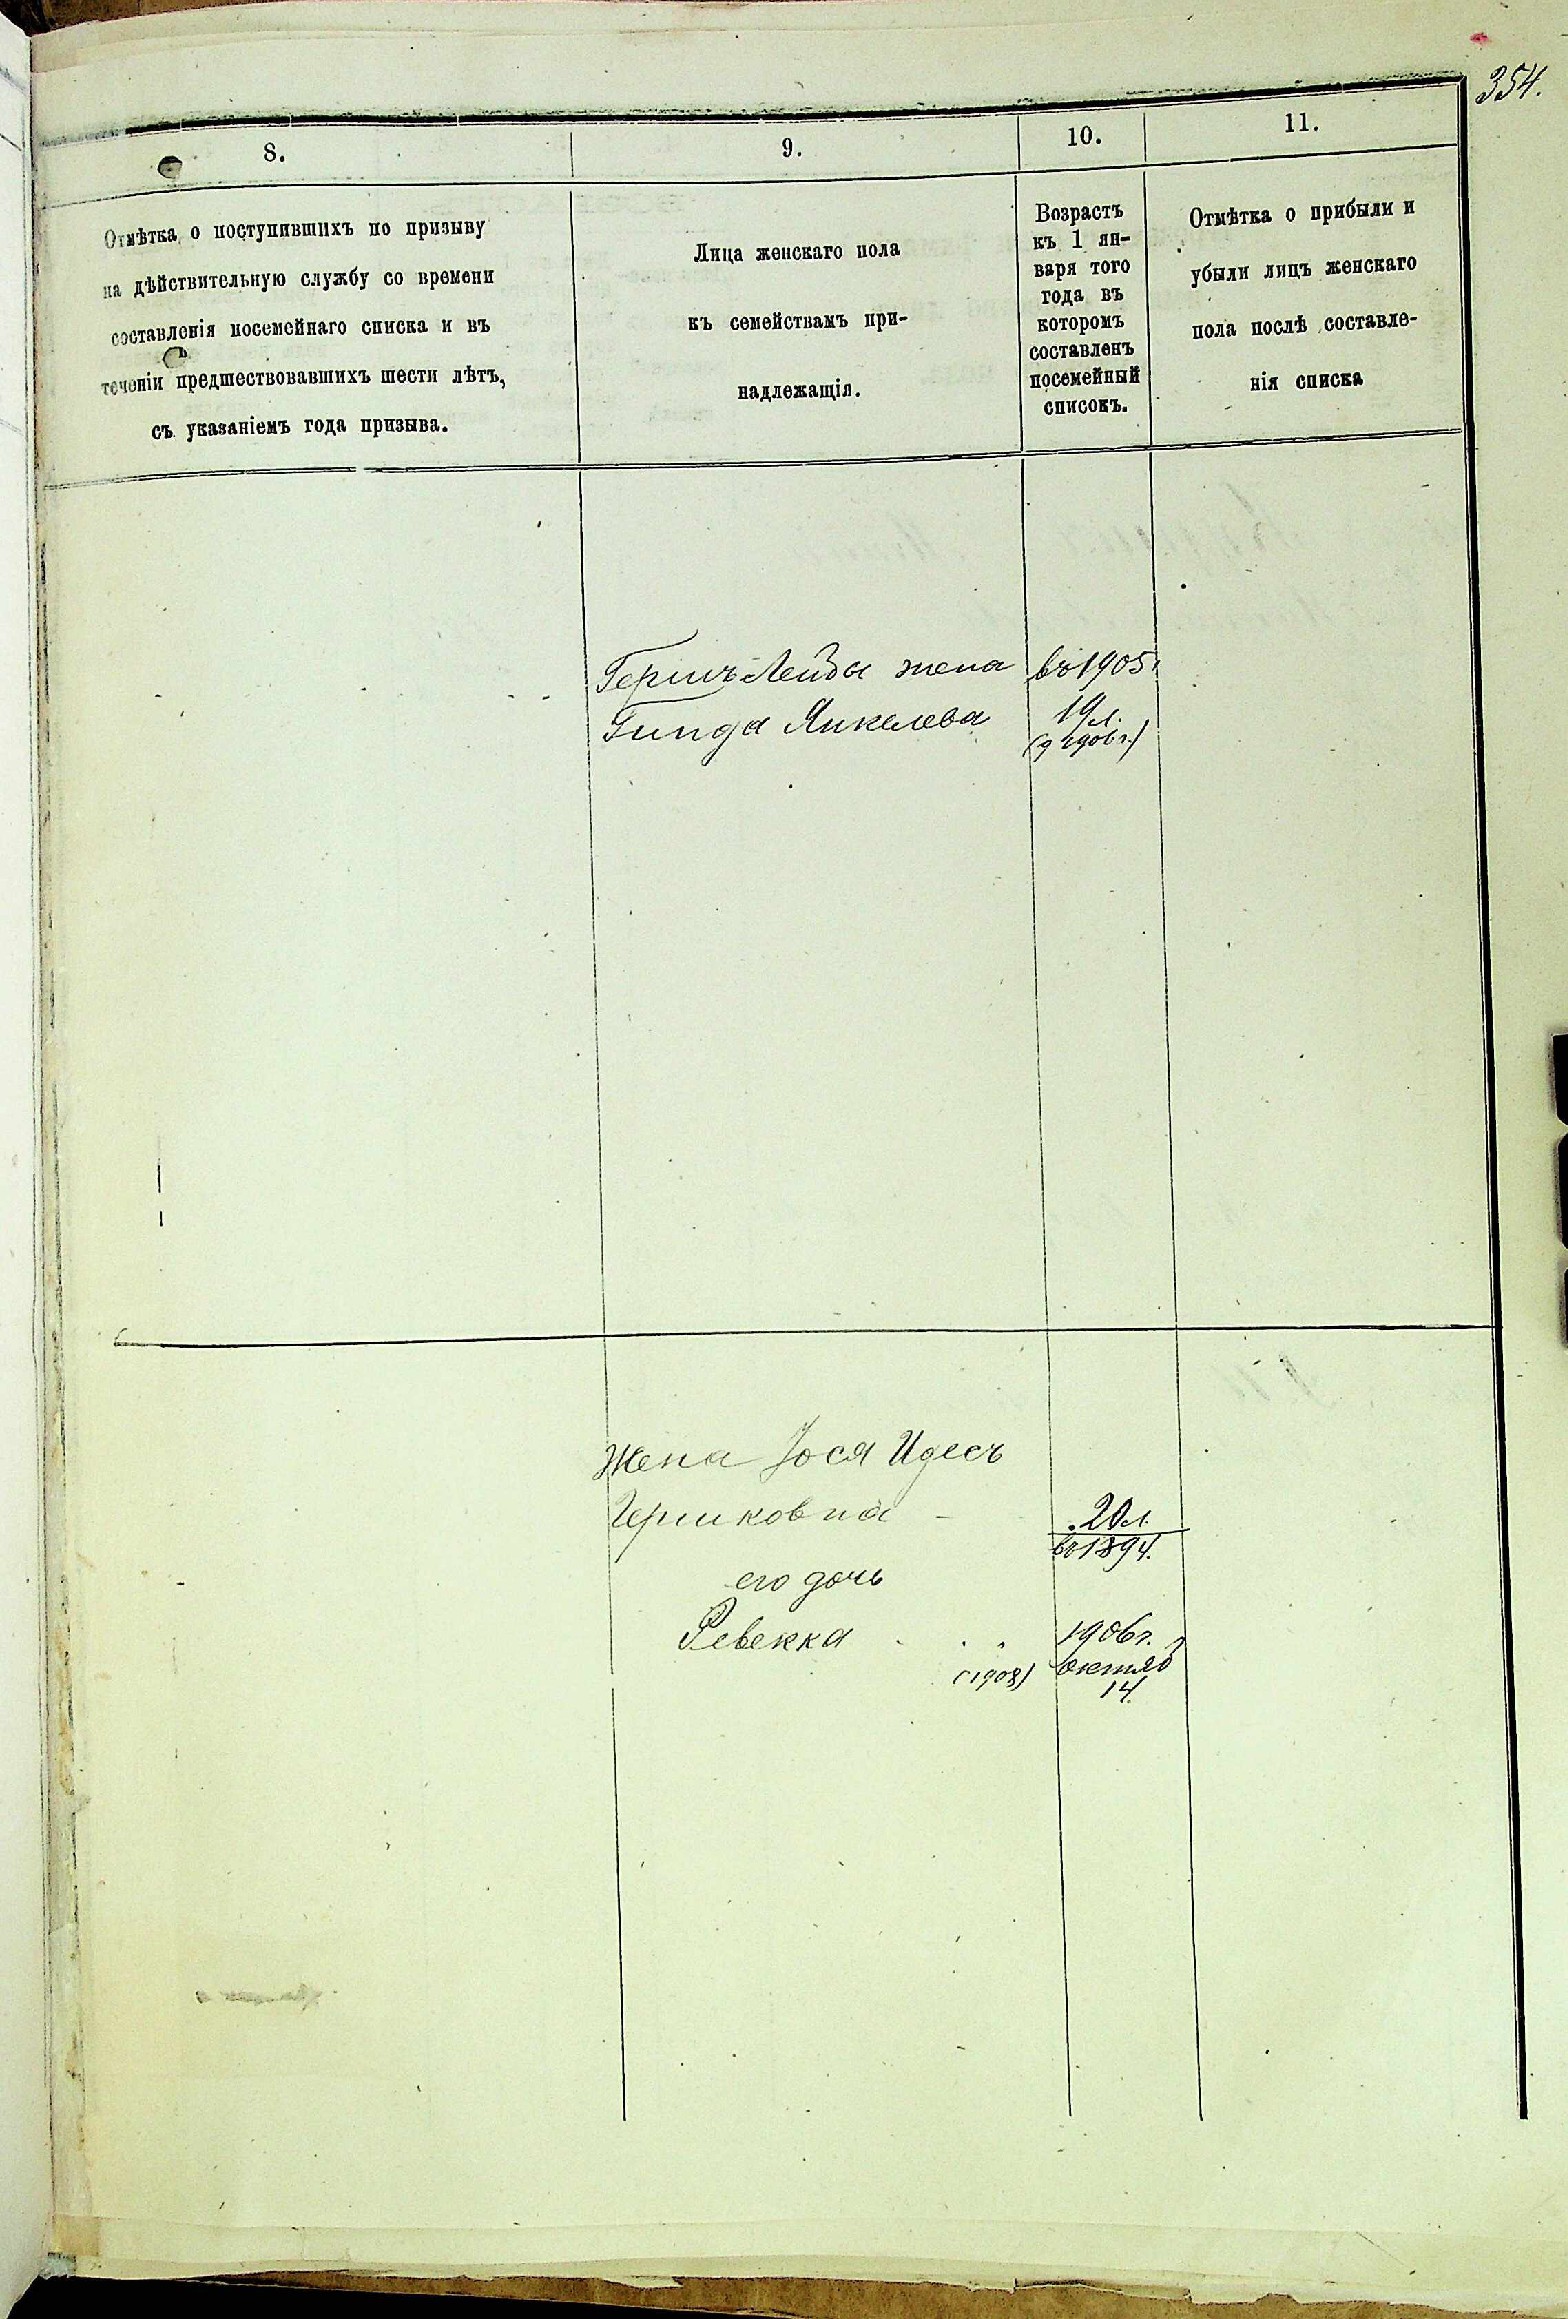 354.
8.
9.
10.
11.
Отмѣтка о поступившихъ по призыву
на дѣйствительную службу со времени
составленія посемейнаго списка и въ
теченіи предшествовавшихъ шести лѣтъ,
съ указаніемъ года призыва.
Лица женскаго пола
къ семействамъ при-
надлежащія.
Возрастъ
къ 1 ян-
варя того
года въ
которомъ
составленъ
посемейный
списокъ.
Отмѣтка о прибыли и
убыли лицъ женскаго
пола послѣ составле-
нія списка
Гершъ Лейбы жена
въ 1905г
Гинда Янкелева
19 л.
1906г.)
Жена Юся Идесъ
Гершковна
20 л.
въ 1894.
его дочь
Ревекка
1906г.
(1908)
октяб
14.